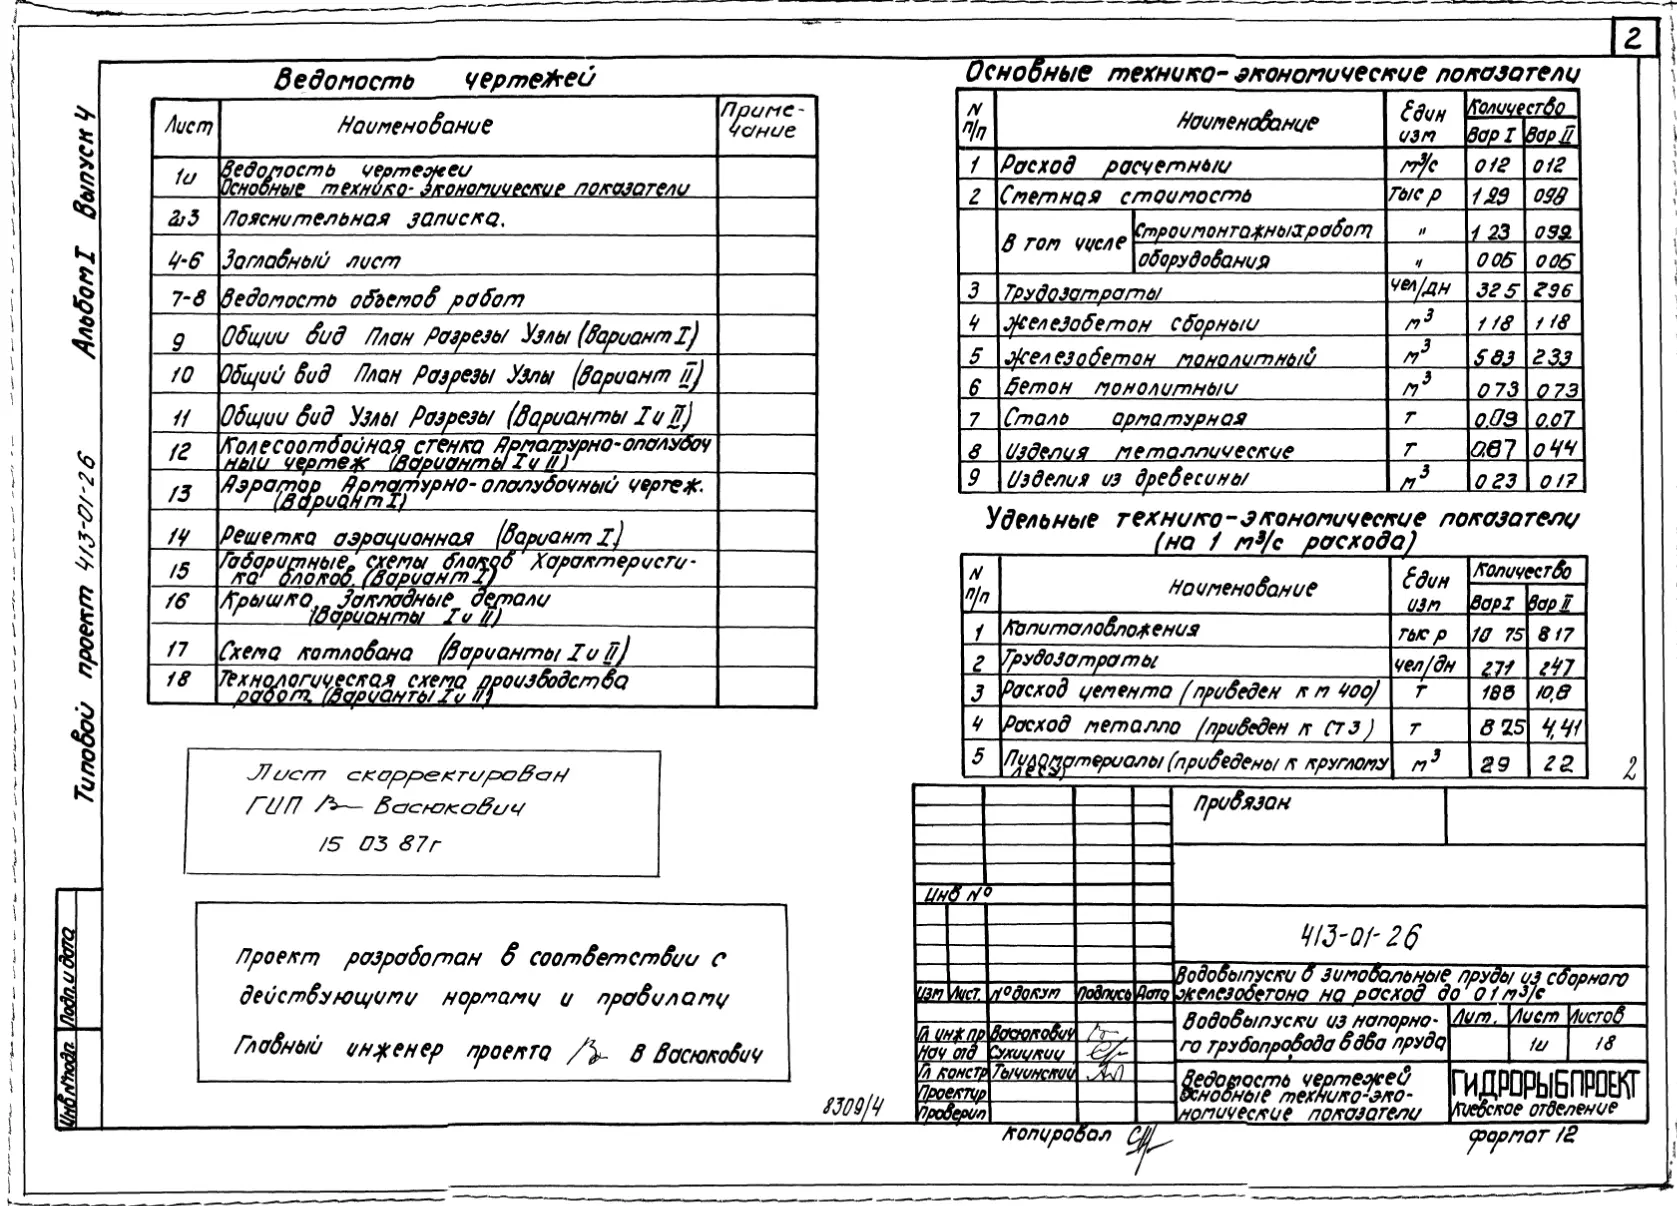 2
Типовой проект 413-01-26 Альбом I Выпуск 4
Ведомость чертежей
Лист Наименование Приме-
чание
1и Ведомость чертежей
Основные технико-экономические показатели
2и3 Пояснительная записка.
4-6 Заглавный лист
7-8 Ведомость объемов работ
9 Общий вид План Разрезы Узлы (Вариант I)
10 Общий вид План Разрезы Узлы (Вариант II)
11 Общий вид Узлы Разрезы (Варианты I и II)
12 Колесоотбойная стенка Арматурно-опалубоч
ный чертеж (Варианты I и II)
13 Аэратор Арматурно-опалубочный чертеж.
(Вариант I)
14 Решетка аэрационная (Вариант I)
15 Габаритные схемы блоков Характеристи-
ка блоков. (Вариант I)
16 Крышка Закладные детали
(Варианты I и II)
17 Схема котлована (Варианты I и II)
18 Технологическая схема производства
работ. (Варианты I и II)
Лист скорректирован
ГИП Васюкович
15 03 87г
Проект разработан в соответствии с
действующими нормами и правилами
Главный инженер проекта В Васюкович
8309/4
Основные технико-экономические показатели
N
п/п Наименование Един
изм Количество
Вар I Вар II
1 Расход расчетный м³/с 0 12 0 12
2 Сметная стоимость тыс р 1 29 0 98
В том числе Строимонтажных работ " 1 23 0 92
оборудования " 0 06 0 06
3 Трудозатраты чел/дн 32 5 29 6
4 Железобетон сборный м³ 1 18 1 18
5 Железобетон монолитный м³ 5 83 2 33
6 Бетон монолитный м³ 0 73 0 73
7 Сталь арматурная т 0.09 0.07
8 Изделия металлические т 0.87 0 44
9 Изделия из древесины м³ 0 23 0 17
Удельные технико-экономические показатели
(на 1 м³/с расхода)
N
п/п Наименование Един
изм Количество
Вар I Вар II
1 Капиталовложения тыс р 10 75 8 17
2 Трудозатраты чел/дн 271 247
3 Расход цемента (приведен к м 400) т 18 8 10,8
4 Расход металла (приведен к Ст 3) т 8 75 4,41
5 Пиломатериалы (приведены к круглому
лесу) м³ 2 9 2 2
2
Привязан
Инв №
413-01-26
Водовыпуски в зимовальные пруды из сборного
железобетона на расход до 0 1 м³/с
Изм Лист. № докум Подпись Дата
Гл инж пр Васюкович
Нач отд Сухицкий
Гл констр Тычинский
Проектир
Проверил
Водовыпуски из напорно-
го трубопровода в два пруда
Лит. Лист Листов
1и 18
Ведомость чертежей
Основные технико-эко-
номические показатели
ГИДРОРЫБПРОЕКТ
Киевское отделение
Копировал
формат 12
Подп. и дата
Инв № подл